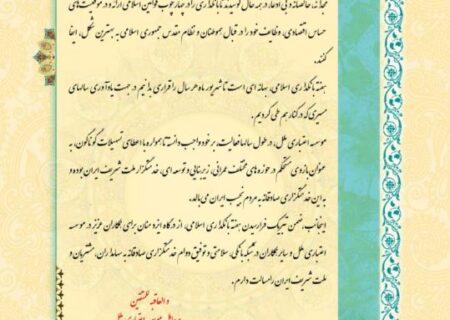 مجدانه، خالصانه و بی ادعا، در همه حال کوشیدند تا بانکداری را در چهارچوب قوانین اسلامی ارائه و در موقعیت‌های
حساس اقتصادی، وظایف خود را در قبال هموطنان و نظام مقدس جمهوری اسلامی به بهترین شکل، ایفا
کنند.
هفته بانکداری اسلامی، بهانه ای است تا شهریور ماه هر سال را قراری بدانیم در جهت یادآوری سالهای
مسیری که در کنار هم طی کردیم.
موسسه اعتباری ملل، در طول سالها فعالیت، بر خود واجب دانسته تا همواره با اعطای تسهیلات گوناگون، به
عنوان بازوی مستحکم در حوزه های مختلف عمرانی، زیربنایی و توسعه ای، خدمتگزار ملت شریف ایران بوده و
به این خدمتگزاری صادقانه به مردم نجیب ایران می‌بالد.
اینجانب، ضمن تبریک فرا رسیدن هفته بانکداری اسلامی، از درگاه ایزد منان برای همکاران عزیز در موسسه
اعتباری ملل و سایر همکاران در شبکه بانکی، سلامتی و توفیق و دوام خدمتگزاری صادقانه به سهامداران، مشتریان و
ملت شریف ایران را مسالت دارم.
والعاقبه للمتقین